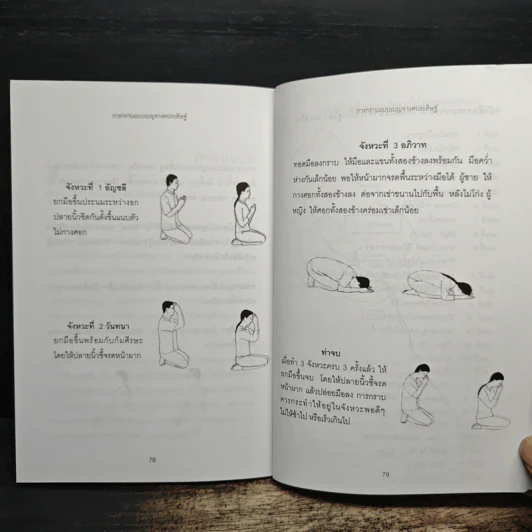 การกราบแบบเบญจางคประดิษฐ์
จังหวะที่ 1 อัญชลี
ยกมือขึ้นประนมระหว่างอก
ปลายนิ้วชิดกันตั้งขึ้นแนบตัว
ไม่กางศอก
จังหวะที่ 2 วันทนา
ยกมือขึ้นพร้อมกับก้มศีรษะ
โดยให้ปลายนิ้วชี้จรดหน้าผาก
78
การกราบแบบเบญจางคประดิษฐ์
จังหวะที่ 3 อภิวาท
ทอดมือลงกราบ ให้มือและแขนทั้งสองข้างลงพร้อมกัน มือคว่ำ
ห่างกันเล็กน้อย พอให้หน้าผากจรดพื้นระหว่างมือได้ ผู้ชาย ให้
กางศอกทั้งสองข้างลง ต่อจากเข่าขนานไปกับพื้น หลังไม่โก่ง ผู้
หญิง ให้ศอกทั้งสองข้างคร่อมเข่าเล็กน้อย
ท่าจบ
เมื่อทำ 3 จังหวะครบ 3 ครั้งแล้ว ให้
ยกมือขึ้นจบ โดยให้ปลายนิ้วชี้จรด
หน้าผาก แล้วปล่อยมือลง การกราบ
ควรกระทำให้อยู่ในจังหวะพอดีๆ
ไม่ช้าไป หรือเร็วเกินไป
79